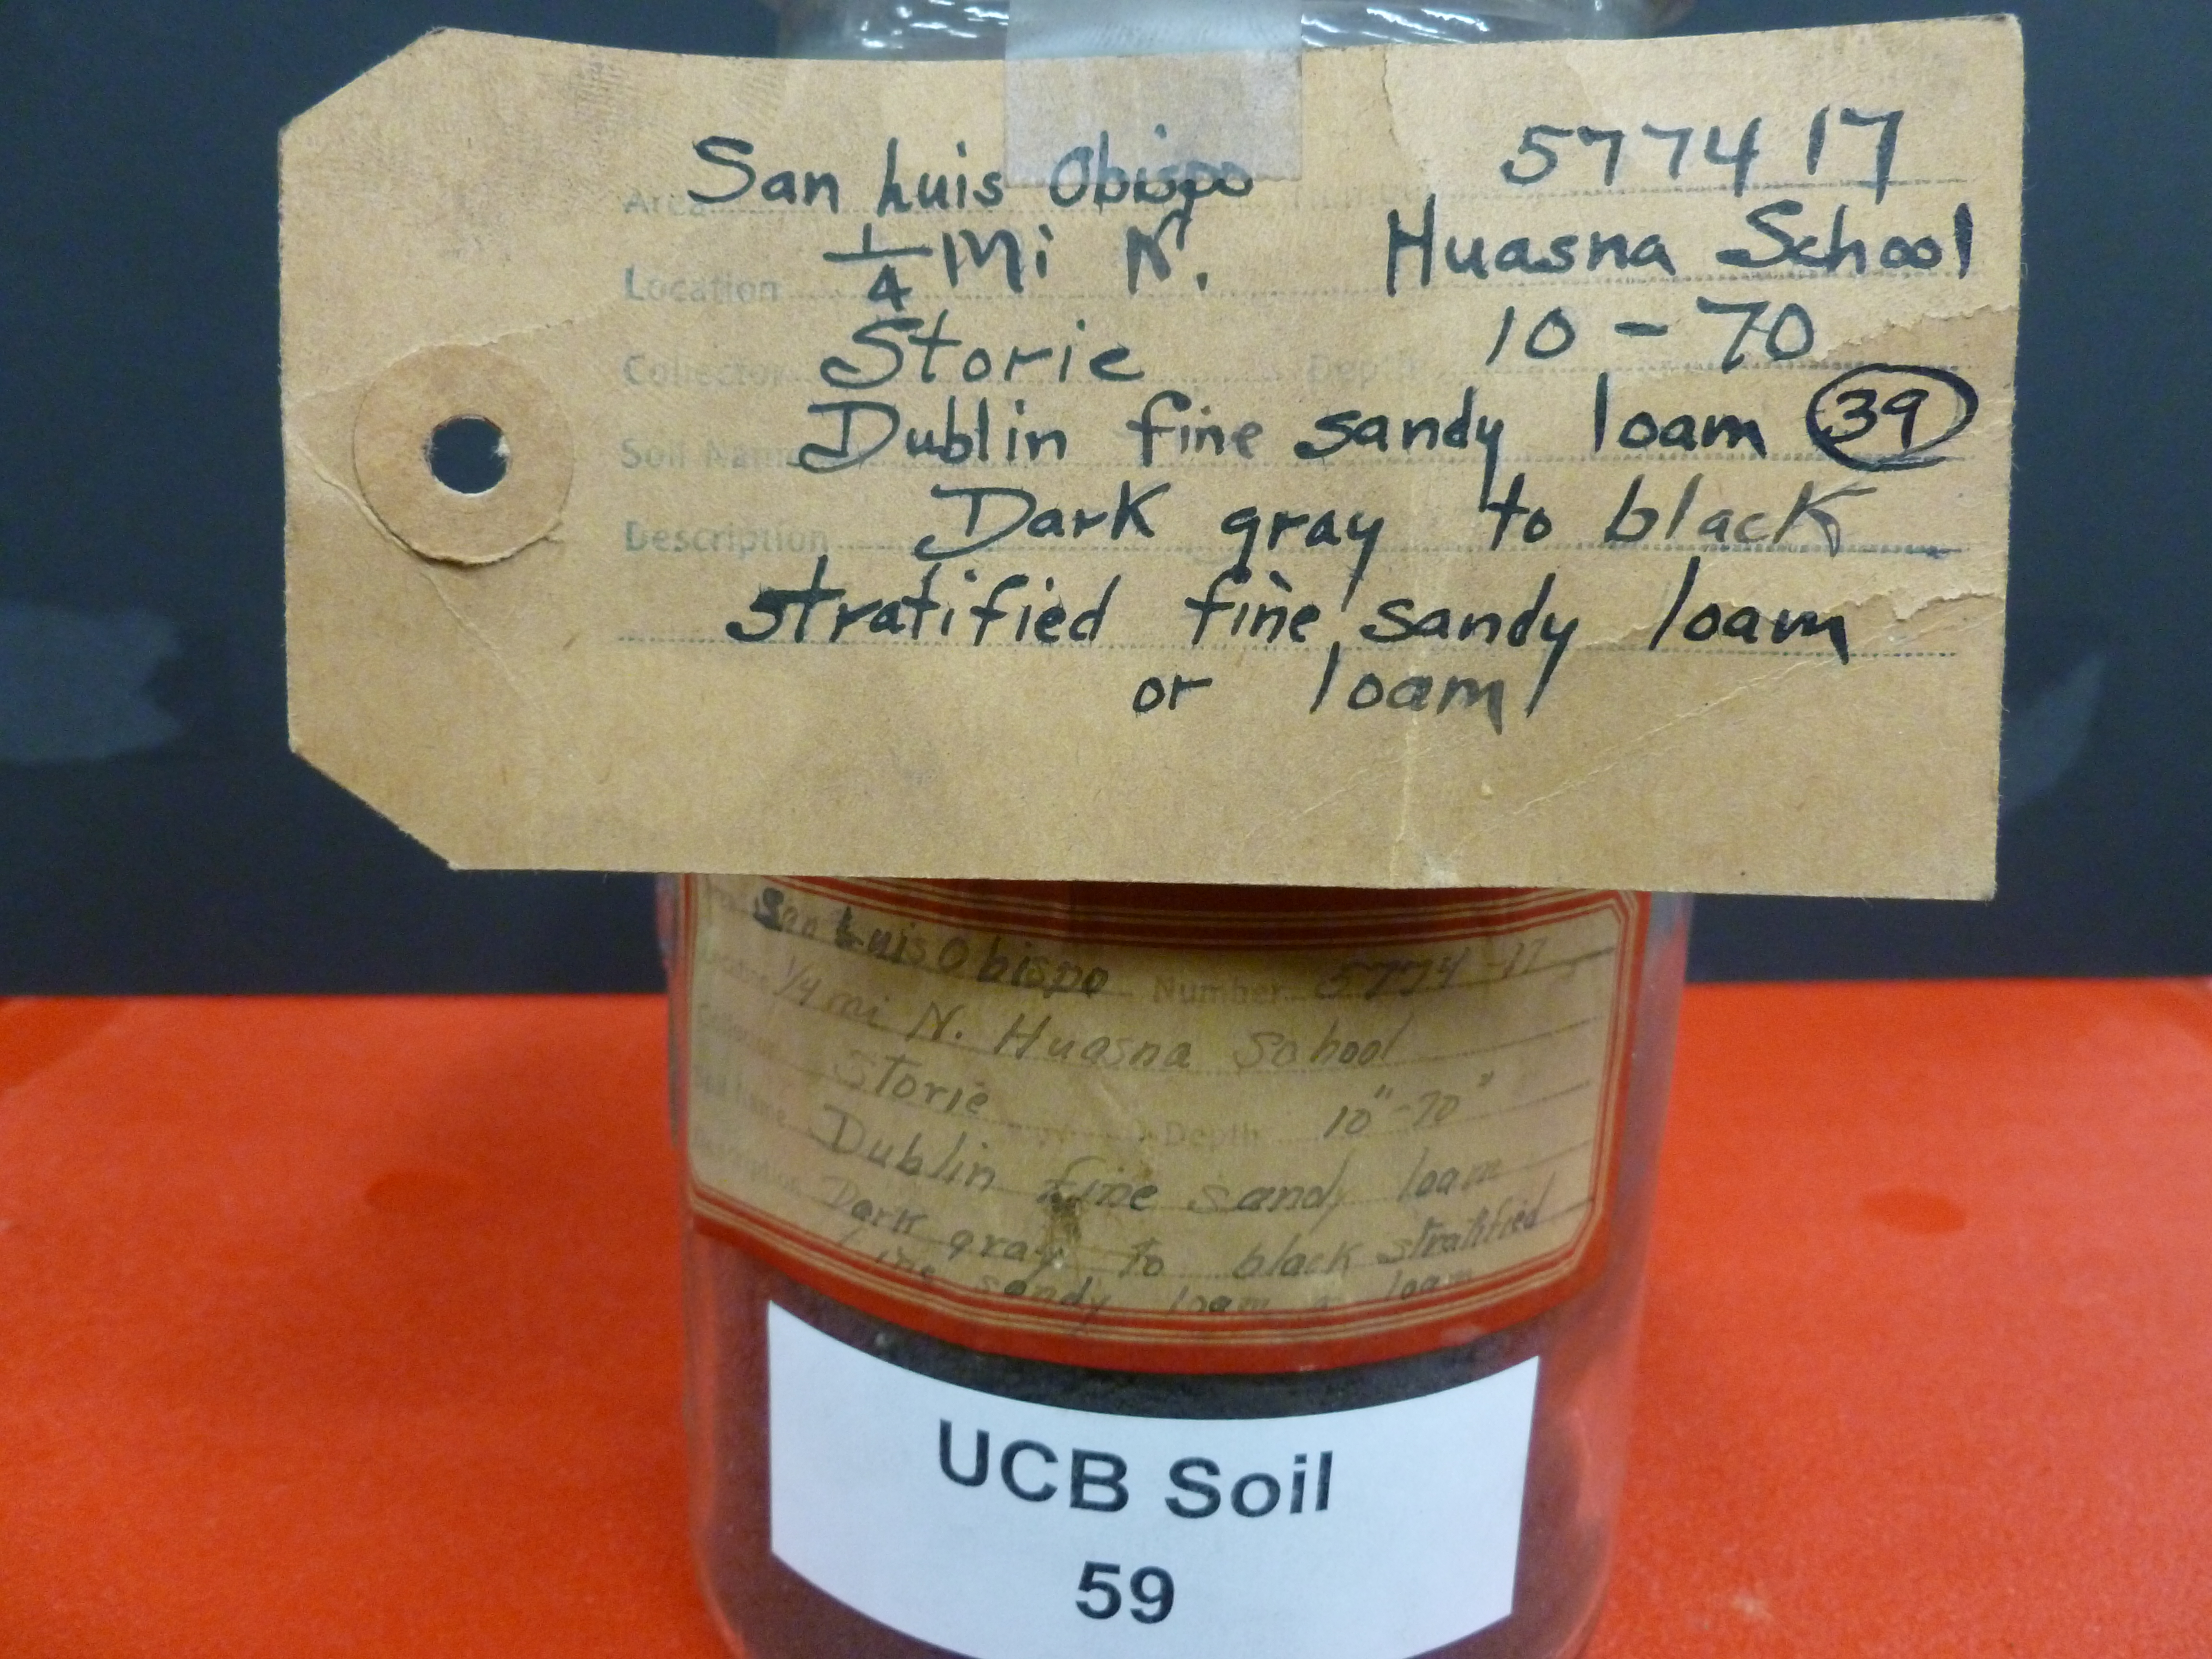 Area San Luis Obispo 5774 17
Location 1/4 Mi N. Huasna School
Collector Storie Depth 10 - 70
Soil Name Dublin fine sandy loam 39
Description Dark gray to black
stratified fine sandy loam
or loam
San Luis Obispo Number 5774-17
1/4 mi N. Huasna School
Storie Depth 10"-70"
Dublin fine sandy loam
Dark gray to black stratified
fine sandy loam or loam
UCB Soil
59